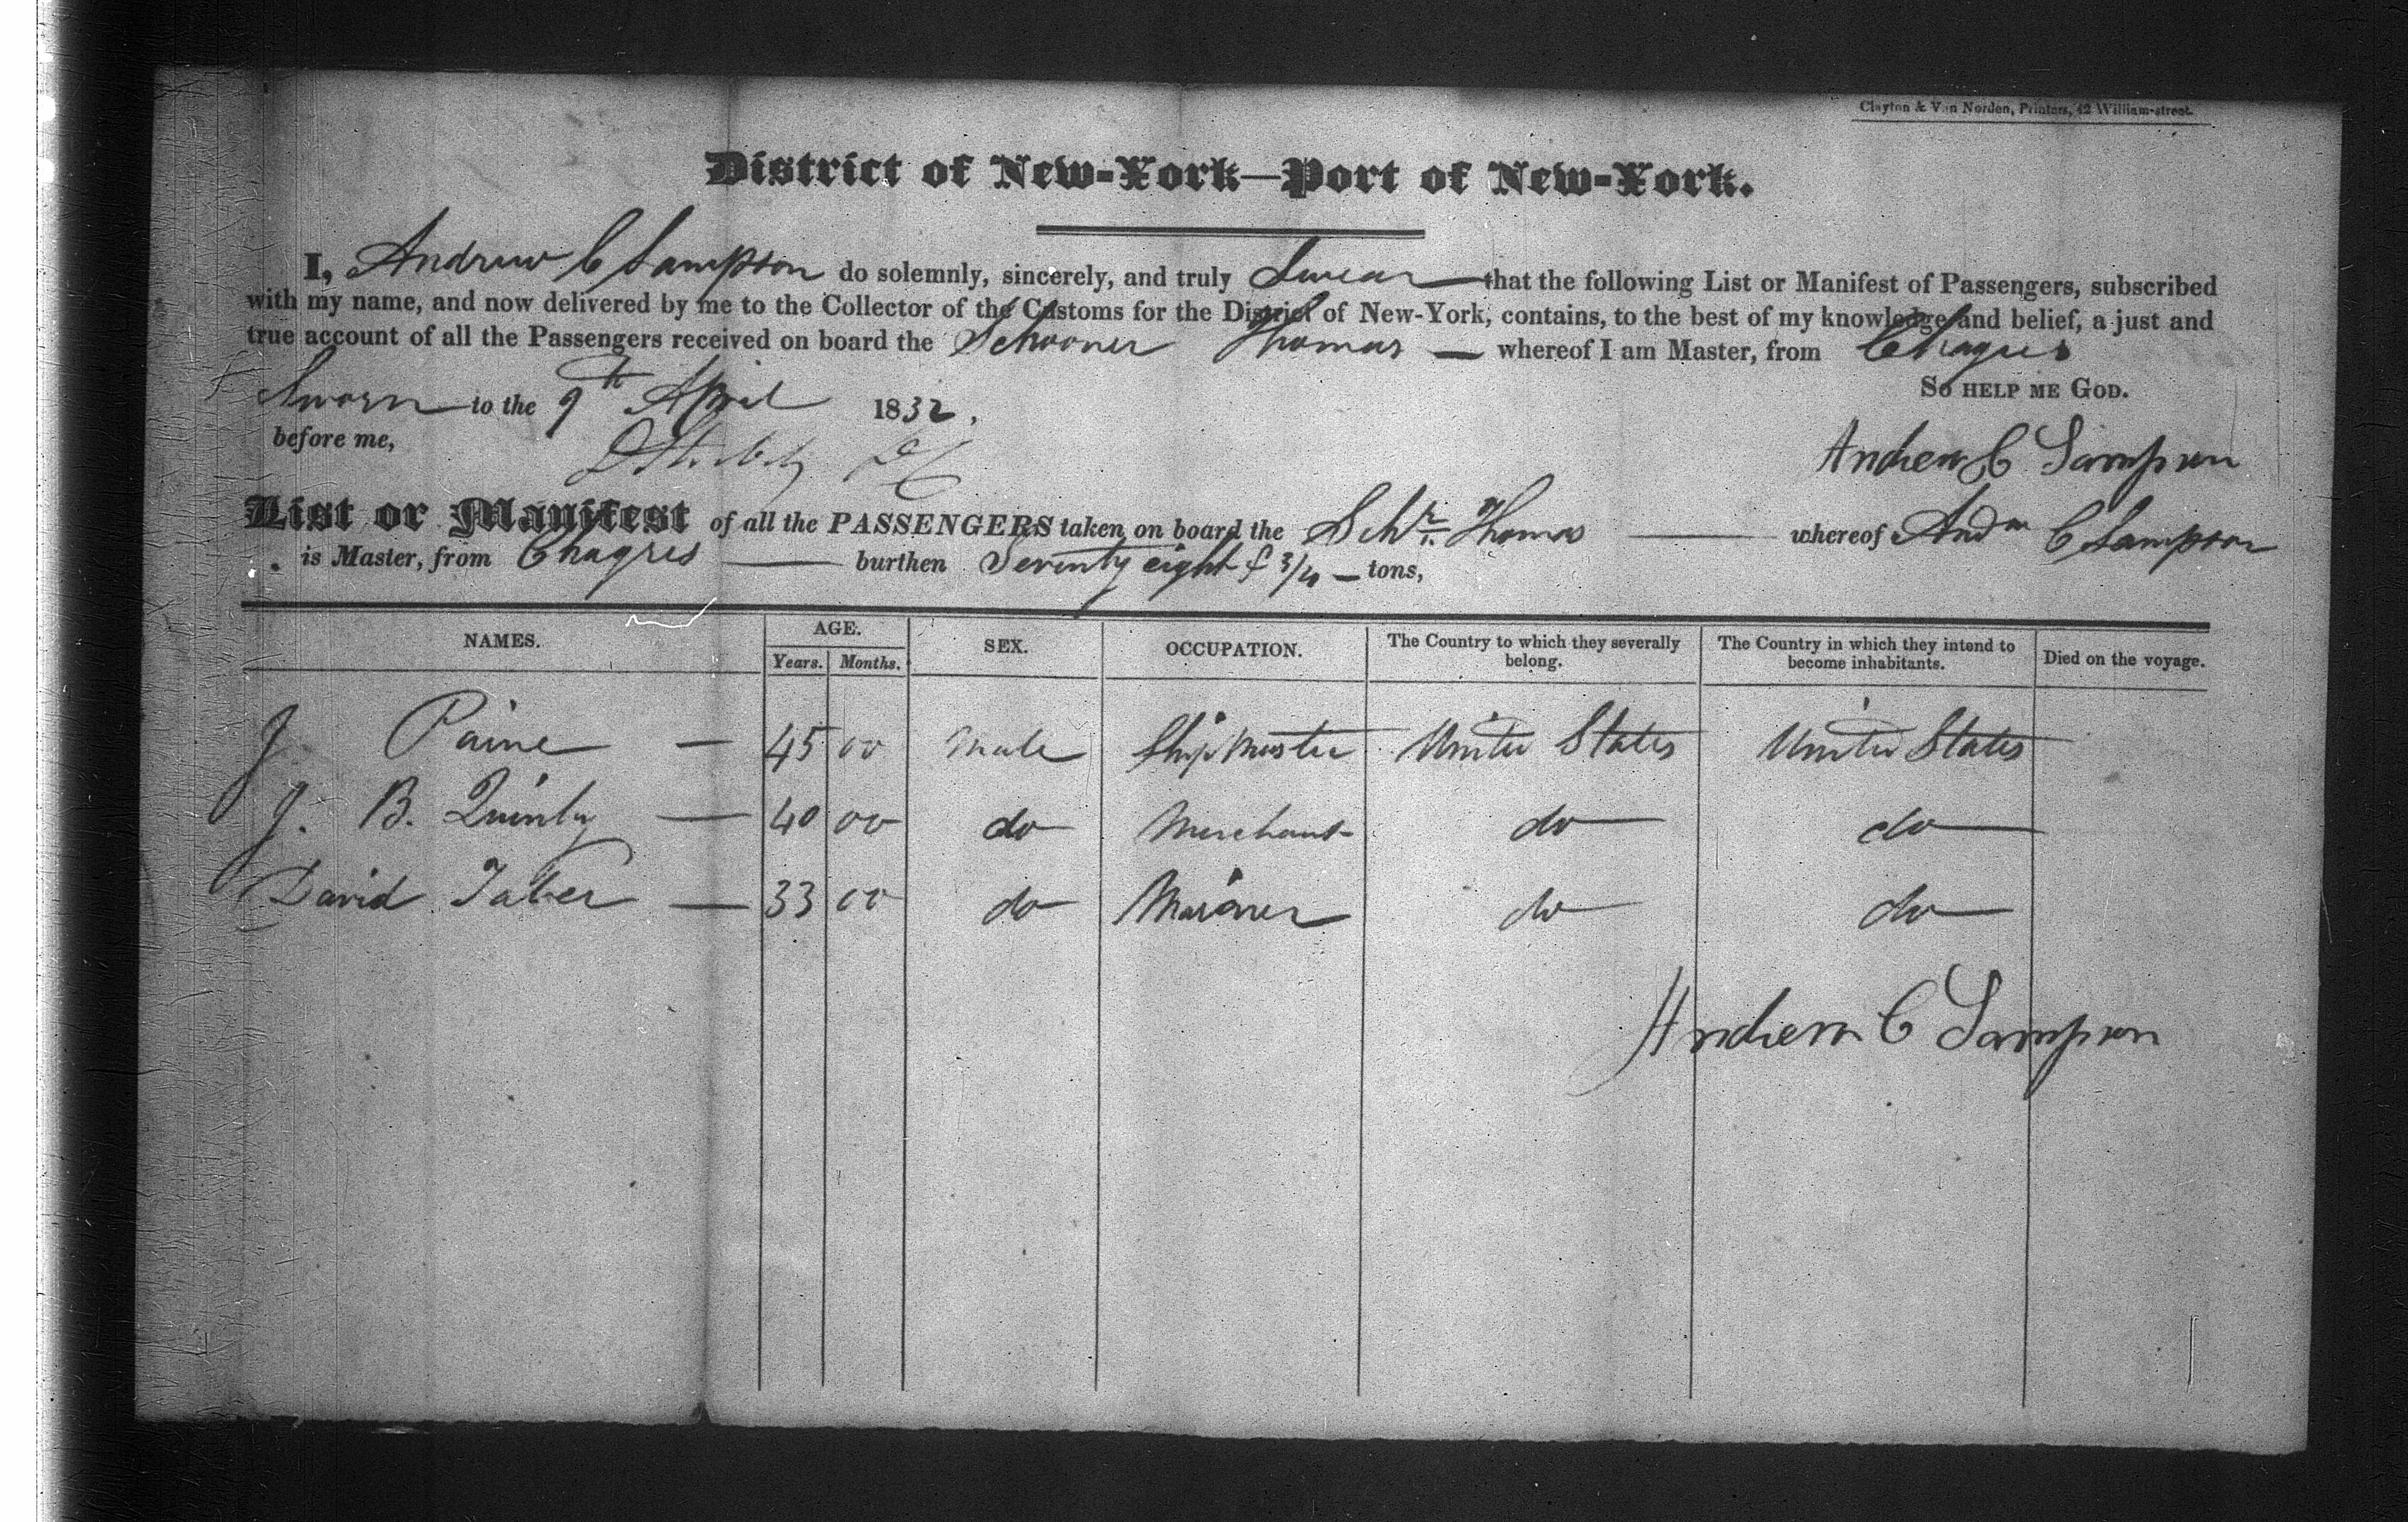 Clayton & Van Norden, Printers, 42 William-street.
District of New-York—Port of New-York.
I, Andrew C Sampson do solemnly, sincerely, and truly Swear that the following List or Manifest of Passengers, subscribed
with my name, and now delivered by me to the Collector of the Customs for the District of New-York, contains, to the best of my knowledge and belief, a just and
true account of all the Passengers received on board the Schooner Thomas — whereof I am Master, from Chagres
So help me God.
Sworn to the 9th April 1832.
before me,
Andrew C Sampson
List or Manifest of all the PASSENGERS taken on board the Schr. Thomas — whereof Andw C Sampson
is Master, from Chagres — burthen Seventy eight & 3/4 — tons,
NAMES. AGE. Years. Months. SEX. OCCUPATION. The Country to which they severally belong. The Country in which they intend to become inhabitants. Died on the voyage.
J. Paine — 45 00 Male Ship Master United States United States
J. B. Quinby — 40 00 do Merchant do do
David Taber — 33 00 do Mariner do do
Andrew C Sampson